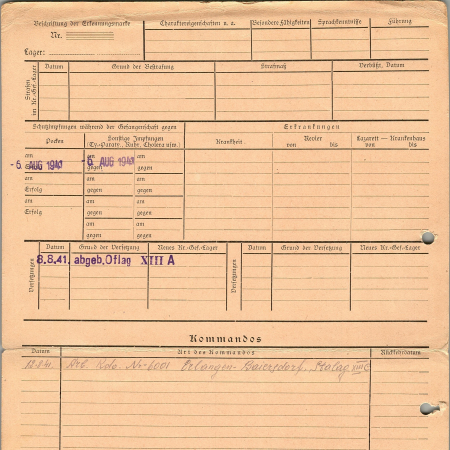 Beschriftung der Erkennungsmarke
Nr.
Lager:
Charaktereigenschaften u. a.
Besondere Fähigkeiten
Sprachkenntnisse
Führung
Strafen im Kr.-Gef.-Lager
Datum
Grund der Bestrafung
Strafmaß
Verbüßt, Datum
Schutzimpfungen während der Gefangenschaft gegen
Erkrankungen
Pocken
Sonstige Impfungen
(Ty.-Paraty., Ruhr, Cholera usw.)
Krankheit
Revier
von bis
Lazarett — Krankenhaus
von bis
am
am
am
-6. AUG 1941
-6. AUG 1941
gegen
gegen
am
am
am
Erfolg
gegen
gegen
am
am
am
Erfolg
gegen
gegen
am
am
gegen
gegen
Versetzungen
Datum
Grund der Versetzung
Neues Kr.-Gef.-Lager
Versetzungen
Datum
Grund der Versetzung
Neues Kr.-Gef.-Lager
8.8.41. abgeb. Oflag XIII A
Kommandos
Datum
Art des Kommandos
Rückkehrdatum
Arb. Kdo. Nr. 6001 Erlangen-Baiersdorf, Stalag XIII C